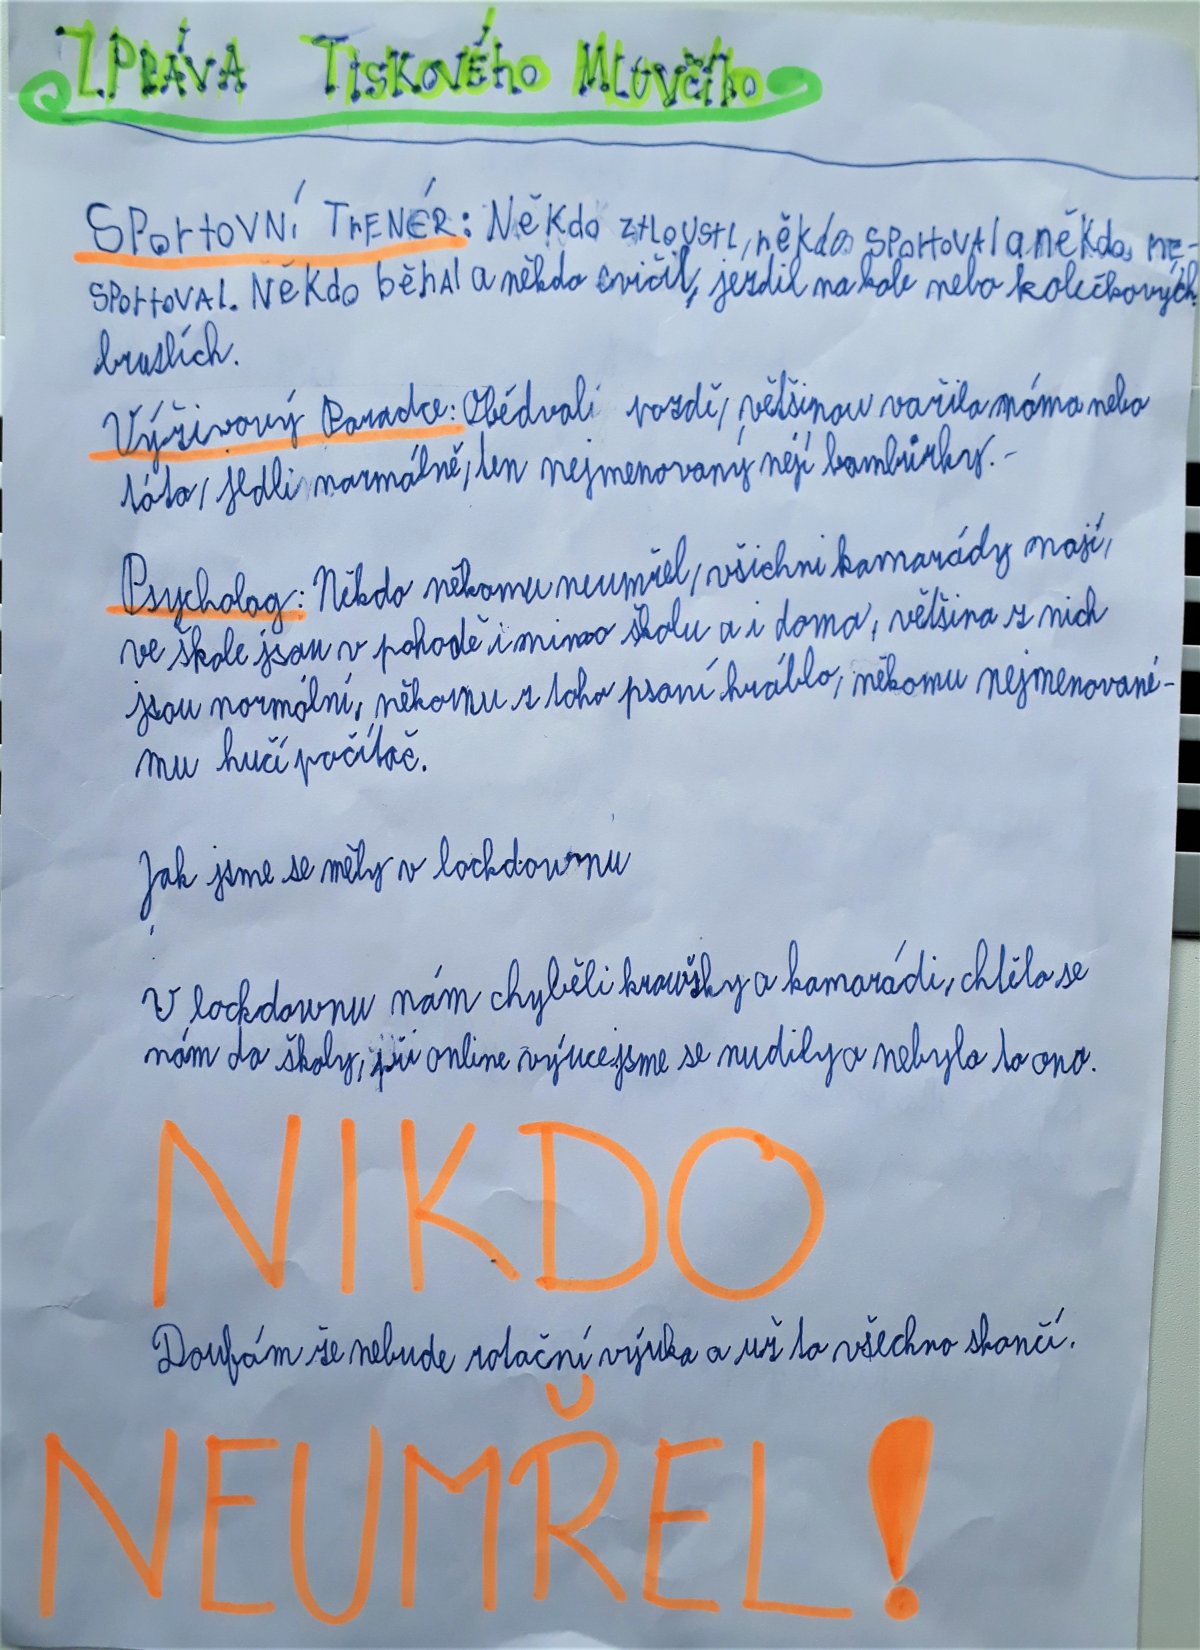 ZPRÁVA TISKOVÉHO MLUVČÍHO
SPORTOVNÍ TRENÉR: NĚKDO ZTLOUSTL, někdo SPORTOVAL a někdo NE-
SPORTOVAL. NĚKDO běHAl a někdo cvičil, jezdil na kole nebo kolečkových
bruslích.
Výživový Poradce: Obědvali pozdě, většinou vařila máma nebo
táta, jedli normálně, ten nejmenovaný nejí bambůrky.-
Psycholog: Nikdo někomu neumřel, všichni kamarády mají,
ve škole jsou v pohodě i mimo školu a i doma, většina z nich
jsou normální, někomu z toho psaní hráblo, někomu nejmenované-
mu hučí počítač.
Jak jsme se měly v lockdownu
V lockdownu nám chyběli kroužky a kamarádi, chtělo se
nám do školy, při online výuce jsme se nudily a nebylo to ono.
NIKDO
Doufám že nebude rotační výuka a už to všechno skončí.
NEUMŘEL!